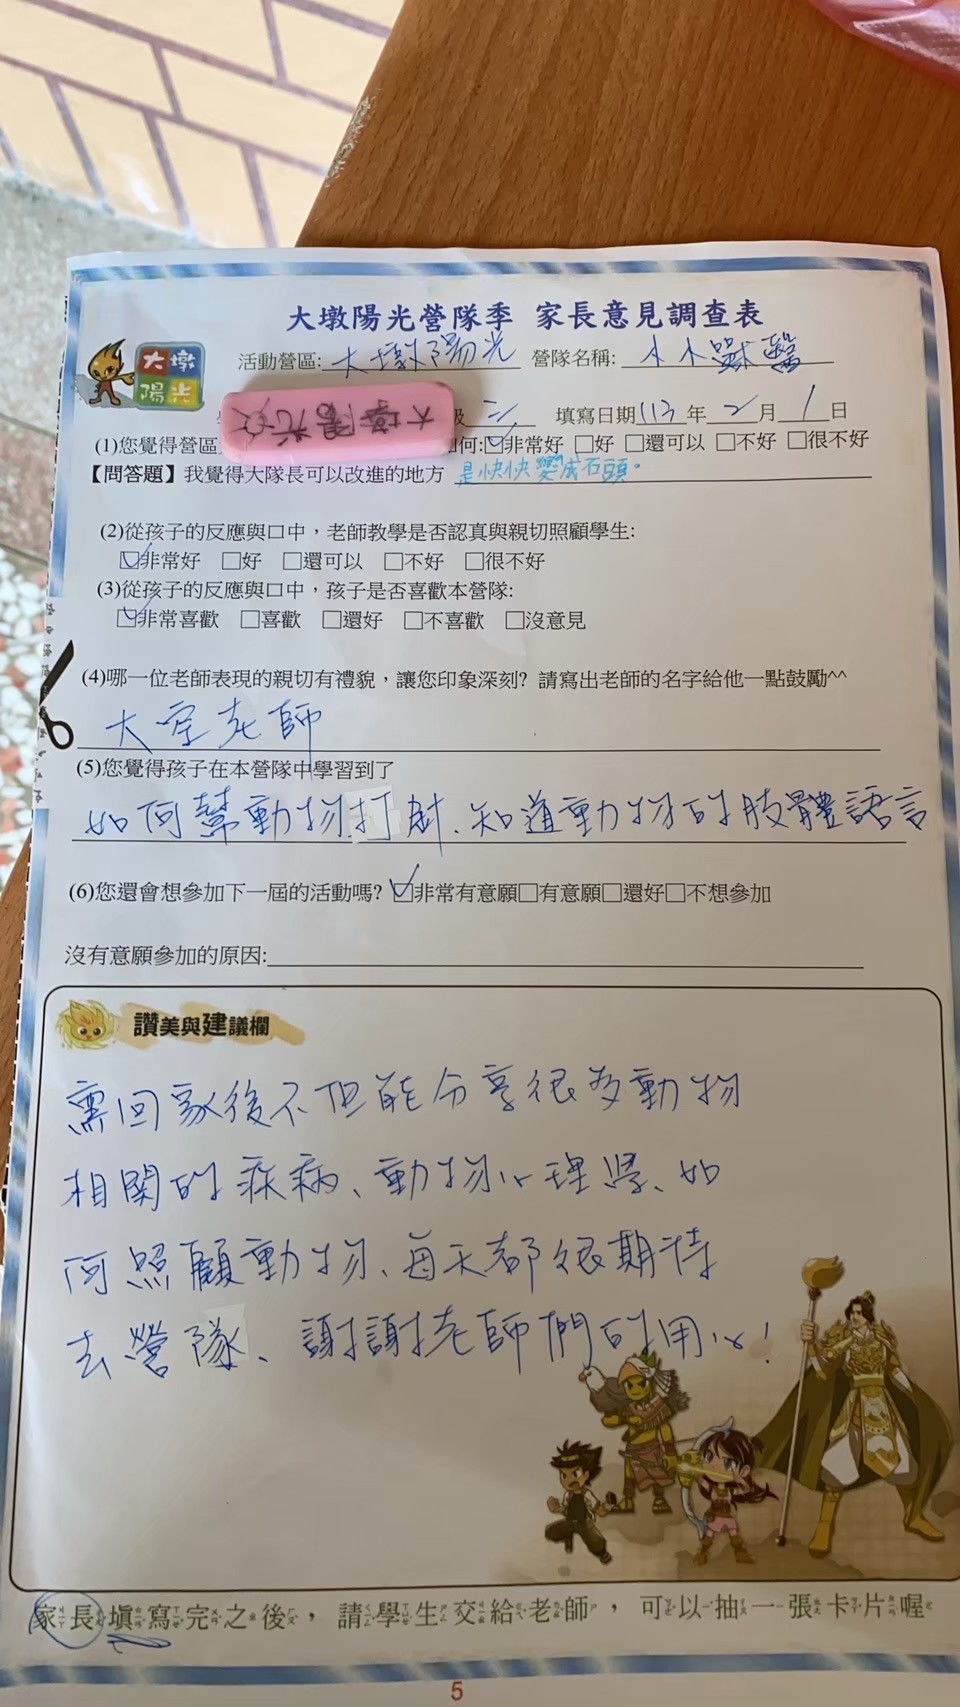 大墩陽光營隊季 家長意見調查表
大墩
陽光
活動營區: 大墩陽光 營隊名稱: 小小獸醫
級 三 填寫日期 113 年 2 月 1 日
大墩陽光
(1)您覺得營區 何:☑非常好 □好 □還可以 □不好 □很不好
【問答題】我覺得大隊長可以改進的地方 是快快變成石頭。
(2)從孩子的反應與口中，老師教學是否認真與親切照顧學生:
☑非常好 □好 □還可以 □不好 □很不好
(3)從孩子的反應與口中，孩子是否喜歡本營隊:
☑非常喜歡 □喜歡 □還好 □不喜歡 □沒意見
(4)哪一位老師表現的親切有禮貌，讓您印象深刻? 請寫出老師的名字給他一點鼓勵^^
大宇老師
(5)您覺得孩子在本營隊中學習到了
如何幫動物打針、知道動物的肢體語言
(6)您還會想參加下一屆的活動嗎? ☑非常有意願□有意願□還好□不想參加
沒有意願參加的原因:
讚美與建議欄
回家後不但能分享很多動物
相關的疾病、動物心理學、如
何照顧動物、每天都很期待
去營隊、謝謝老師們的用心!
家長填寫完之後，請學生交給老師，可以抽一張卡片喔
5